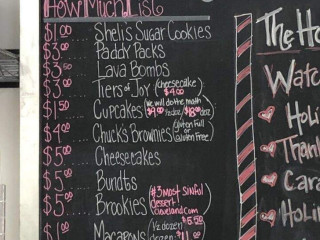 How Much Liste
$1.00 .... Sheli's Sugar Cookies
$3.00 .... Paddy Packs
$3.50 .... Lava Bombs
$3.00 .... Tiers of Joy (cheesecake) $4.00
$1.50 .... Cupcakes (we will do the math $9.00 ½ doz / $18.00 doz)
$4.00 .... Chuck's Brownies (Gluten Full or Gluten Free)
$5.00 .... Cheesecakes
$5.00 .... Bundts
$5.00 .... Brookies (#3 most sinful dessert! Cleveland.com)
$1.00 .... Macarons (½ dozen) $5.50
dozen $11.00
The Ho
Watc
Holi
Thank
Cara
Holi